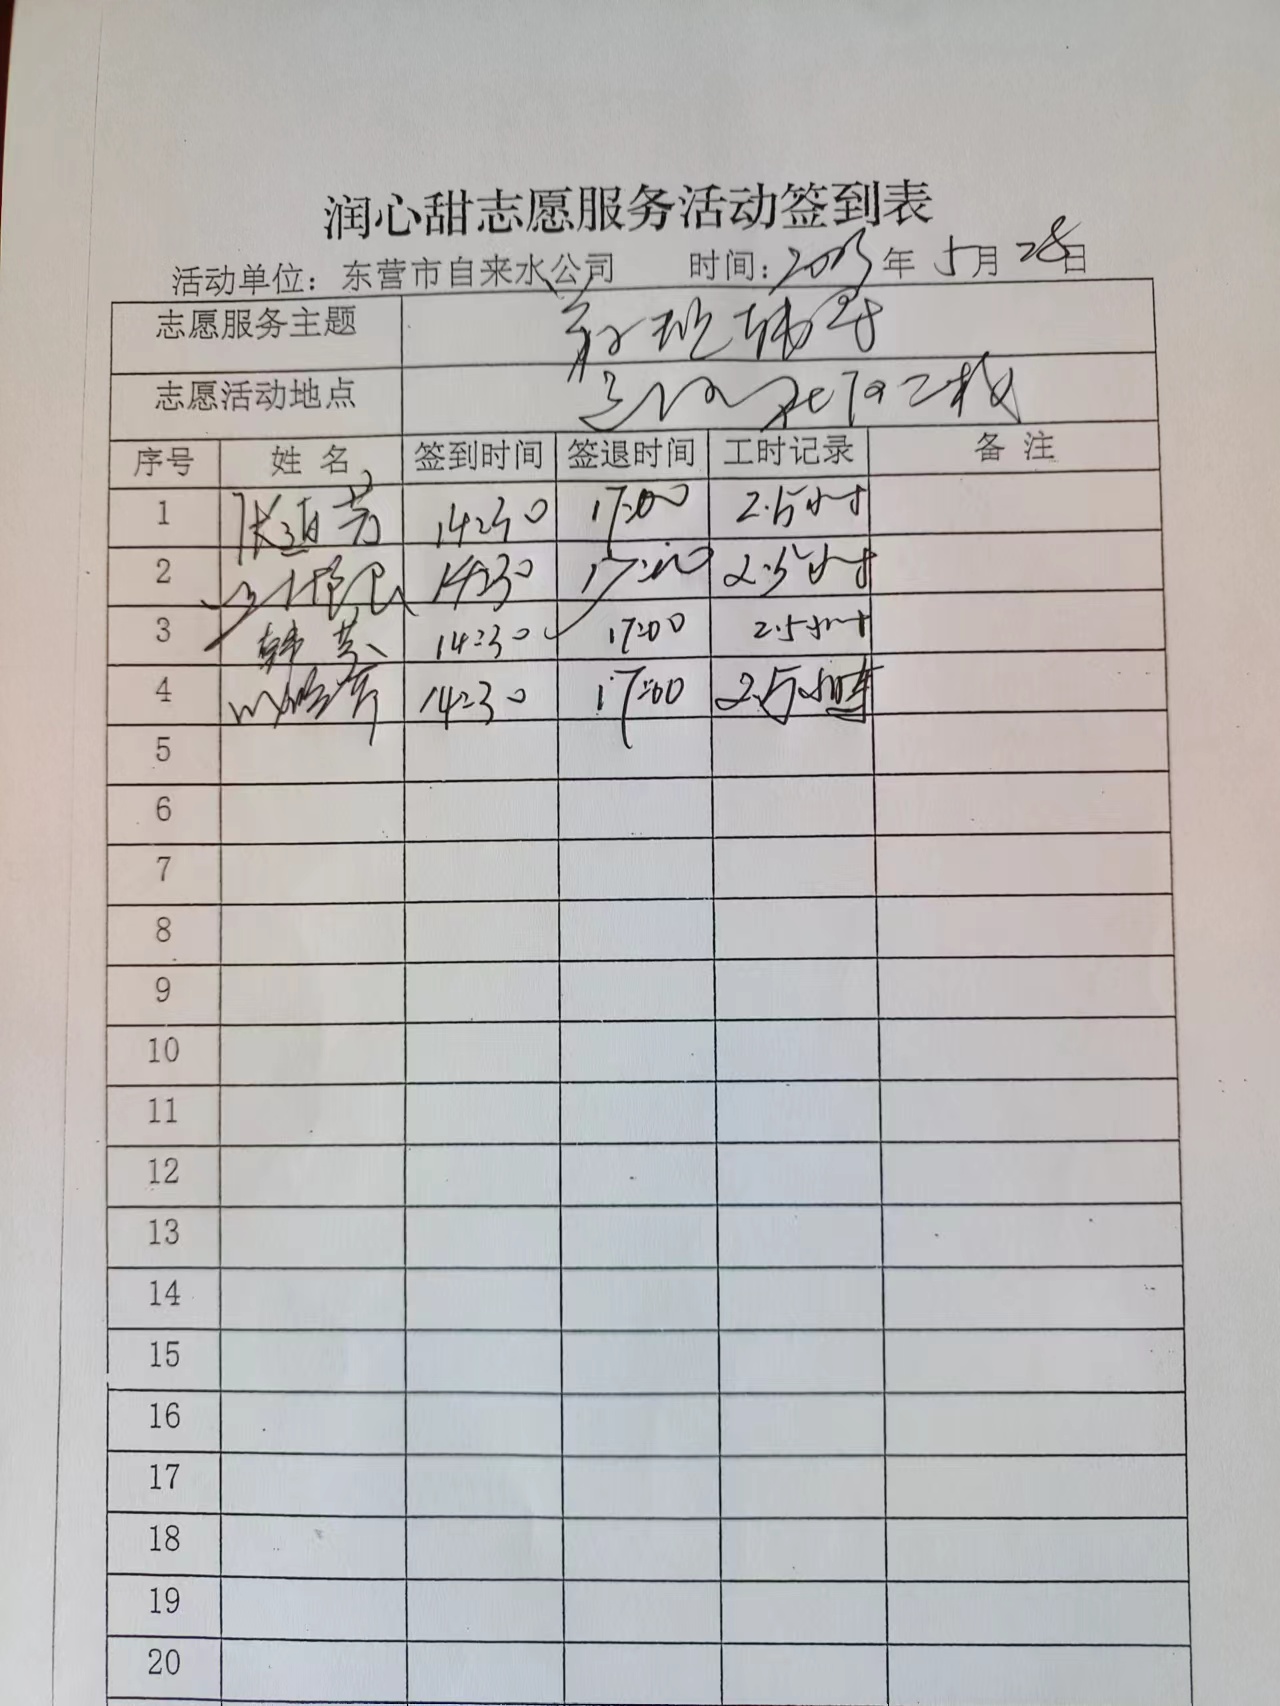 润心甜志愿服务活动签到表
活动单位：东营市自来水公司 时间：2023年5月28日
志愿服务主题
志愿活动地点
序号 姓名 签到时间 签退时间 工时记录 备注
1 14:30 17:00 2.5小时
2 14:30 17:00 2.5小时
3 韩英 14:30 17:00 2.5小时
4 14:30 17:00 2.5小时
5
6
7
8
9
10
11
12
13
14
15
16
17
18
19
20